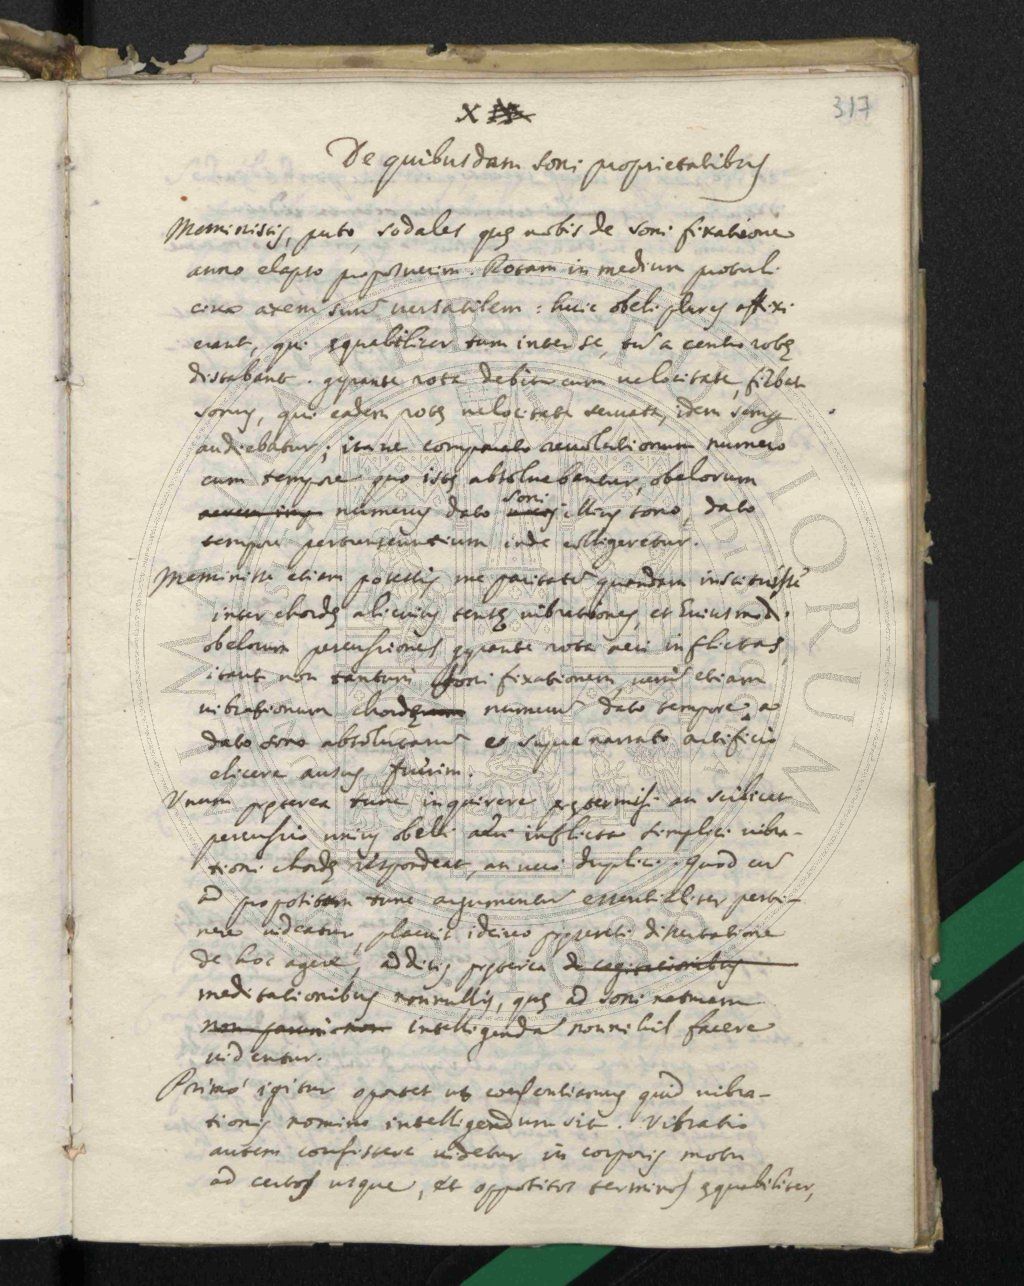 X
317
De quibusdam soni proprietatibus
Meministis, puto, sodales quę nobis de soni fixatione
anno elapso proposuerim. Rotam in medium protuli
circa axem suum versatilem: huic obeli plures affixi
erant, qui ęquabiliter tum inter se, tum a centro rotę
distabant. gyrante rota debita cum velocitate, fiebat
sonus, qui eadem rotę velocitate servata, idem semper
audiebatur; ita ut comparato revolutionum numero
cum tempore quo istę absolvebantur, obelorum
numerus dato soni illius tono, dato
tempore percutientium inde colligeretur.
Meminisse etiam potestis me paritatem quandam instituisse
inter chordę alicuius tensę vibrationes, et eiusmodi
obelorum percussiones gyrante rota aeri inflictas,
ita ut non tantum soni fixationem, verum etiam
vibrationum chordę numerum dato tempore, a
dato sono absolutarum ex supra narrato artificio
elicere ausus fuerim.
Unum pręterea tunc inquirere prętermisi an scilicet
percussio unius obelli aeri inflicta simplici vibra-
tioni chordę respondeat, an vero duplici. Quod cum
ad propositum tunc argumentum essentialiter perti-
nere videatur, placuit idcirco pręsenti dissertatione
de hoc agere, additis pręterea de cogitationibus
meditationibus nonnullis, quę ad soni naturam
intelligendam nonnihil facere
videntur.
Primo igitur oportet ut consentiamus quid vibra-
tionis nomine intelligendum sit. Vibratio
autem consistere videtur in corporis motu
ad certos usque, et oppositos terminos ęquabiliter,